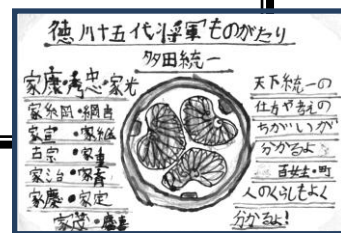 徳川十五代将軍ものがたり
多田統一
家康・秀忠・家光
家綱・綱吉
家宣・家継
吉宗・家重
家治・家斉
家慶・家定
家茂・慶喜
天下統一の
仕方や考えの
ちがいが
分かるよ
・町
人のくらしもよく
分かるよ!